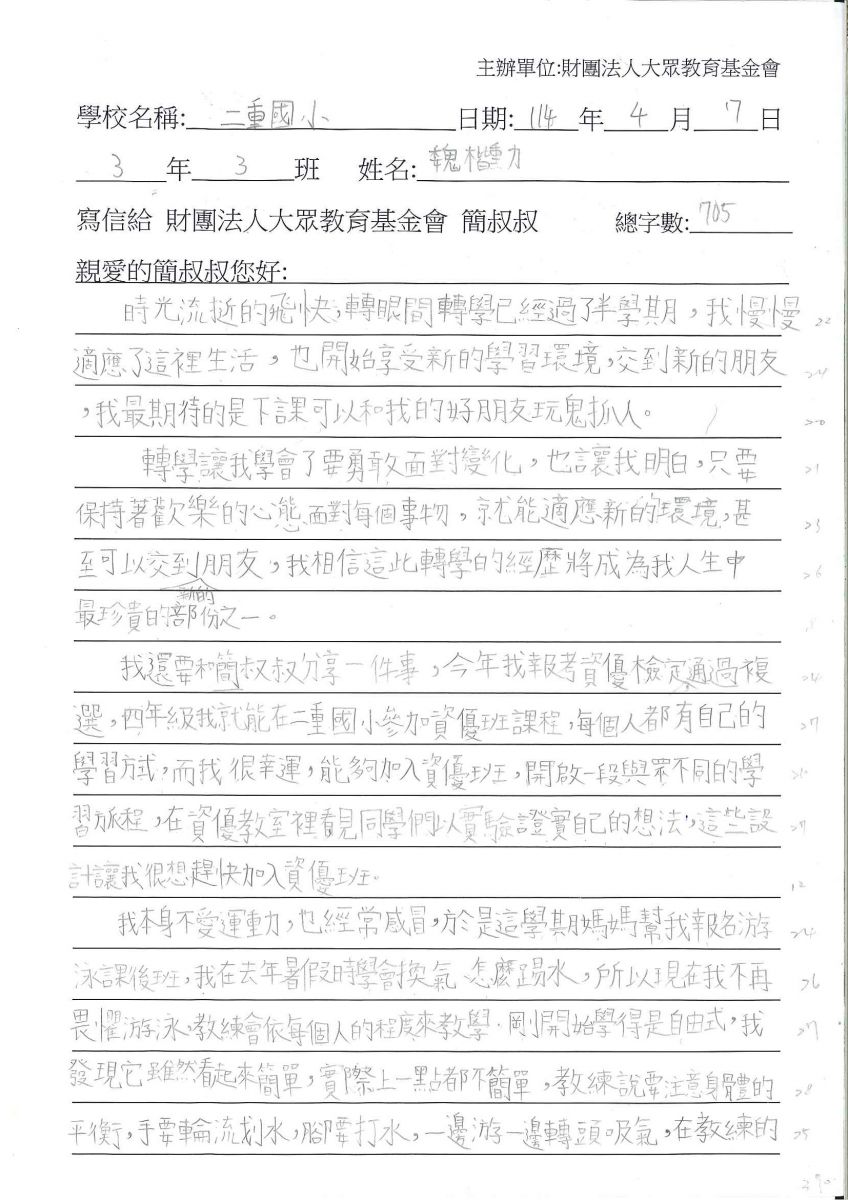 主辦單位:財團法人大眾教育基金會
學校名稱: 二重國小 日期: 114 年 4 月 7 日
3 年 3 班 姓名: 魏楷
寫信給 財團法人大眾教育基金會 簡叔叔 總字數: 705
親愛的簡叔叔您好:
時光流逝的飛快,轉眼間轉學已經過了半學期,我慢慢 22
適應了這裡生活,也開始享受新的學習環境,交到新的朋友 24
,我最期待的是下課可以和我的好朋友玩鬼抓人。 20
轉學讓我學會了要勇敢面對變化,也讓我明白,只要 21
保持著歡樂的心態面對每個事物,就能適應新的環境,甚 23
至可以交到朋友,我相信這此轉學的經歷將成為我人生中 26
新的
最珍貴的部份之一。 8
我還要和簡叔叔分享一件事,今年我報考資優檢定通過複 24
選,四年級我就能在二重國小參加資優班課程,每個人都有自己的 27
學習方式,而我很幸運,能夠加入資優班,開啟一段與眾不同的學
習旅程,在資優教室裡看見同學們以實驗證實自己的想法,這些設 27
計讓我很想趕快加入資優班。 12
我本身不愛運動,也經常感冒,於是這學期媽媽幫我報名游 24
泳課後班,我在去年暑假時學會換氣、怎麼踢水,所以現在我不再 26
畏懼游泳,教練會依每個人的程度來教學,剛開始學得是自由式,我 27
發現它雖然看起來簡單,實際上一點都不簡單,教練說要注意身體的 28
平衡,手要輪流划水,腳要打水,一邊游一邊轉頭吸氣,在教練的 25
390